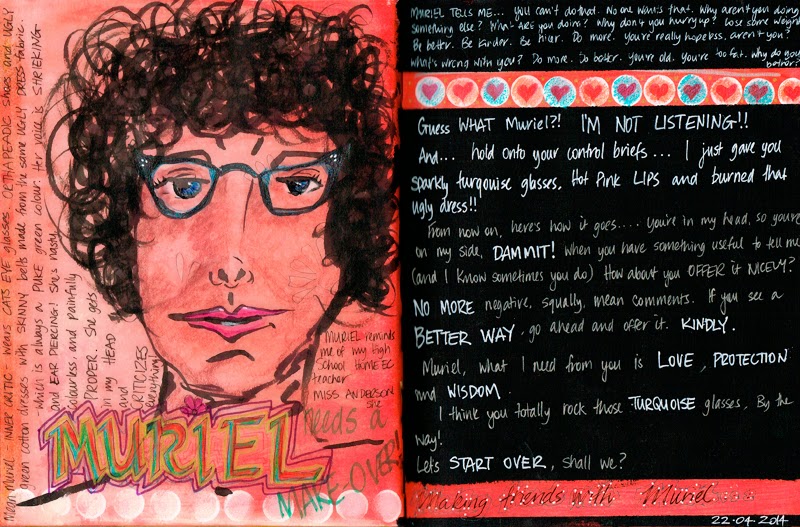 Mean Muriel - INNER CRITIC - wears CATS EYE glasses, ORTHAPEADIC shoes and UGLY
green cotton dresses with SKINNY belts made from the same UGLY DRESS fabric.
- which is always a PUKE green colour. Her voice is SHRIEKING
and EAR PIERCING! She's nasty,
colourless, and painfully
PROPER. She gets
in my HEAD
and
CRITICIZES
everything
MURIEL reminds
me of my High
School HOME EC
teacher
MISS ANDERSON
she
needs a
MURIEL
MAKE OVER!
MURIEL TELLS ME... you can't do that. No one wants that. Why aren't you doing
something else? What ARE you doing? Why don't you hurry up? Lose some weight
Be better. Be kinder. Be nicer. Do more. You're really hopeless, aren't you?
What's wrong with you? Do more. Do better. You're old. You're too fat. Why do you
bother?
Guess WHAT Muriel?! I'M NOT LISTENING!!
And... hold onto your control briefs... I just gave you
sparkly turqouise glasses, Hot Pink LIPS and burned that
ugly dress!!
From now on, here's how it goes.... You're in my head, so you're
on my side, DAMMIT! When you have something useful to tell me
(and I know sometimes you do) How about you OFFER it NICELY?
NO MORE negative, squally, mean comments. If you see a
BETTER WAY, go ahead and offer it. KINDLY.
Muriel, what I need from you is LOVE, PROTECTION
and WISDOM.
I think you totally rock those TURQUOISE glasses, By the
way!
Let's START OVER, shall we?
Making friends with Muriel....
22.04.2014